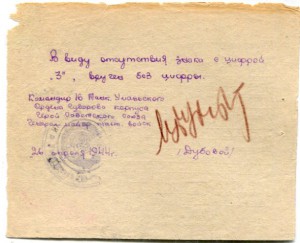 В виду отсутствия знака с цифрой
"3", вручен без цифры.
Командир 10 Танк. Уральского
Ордена Суворова корпуса
Герой Советского Союза
Генерал майор танк. войск
26 1944г.
(Дубовой)